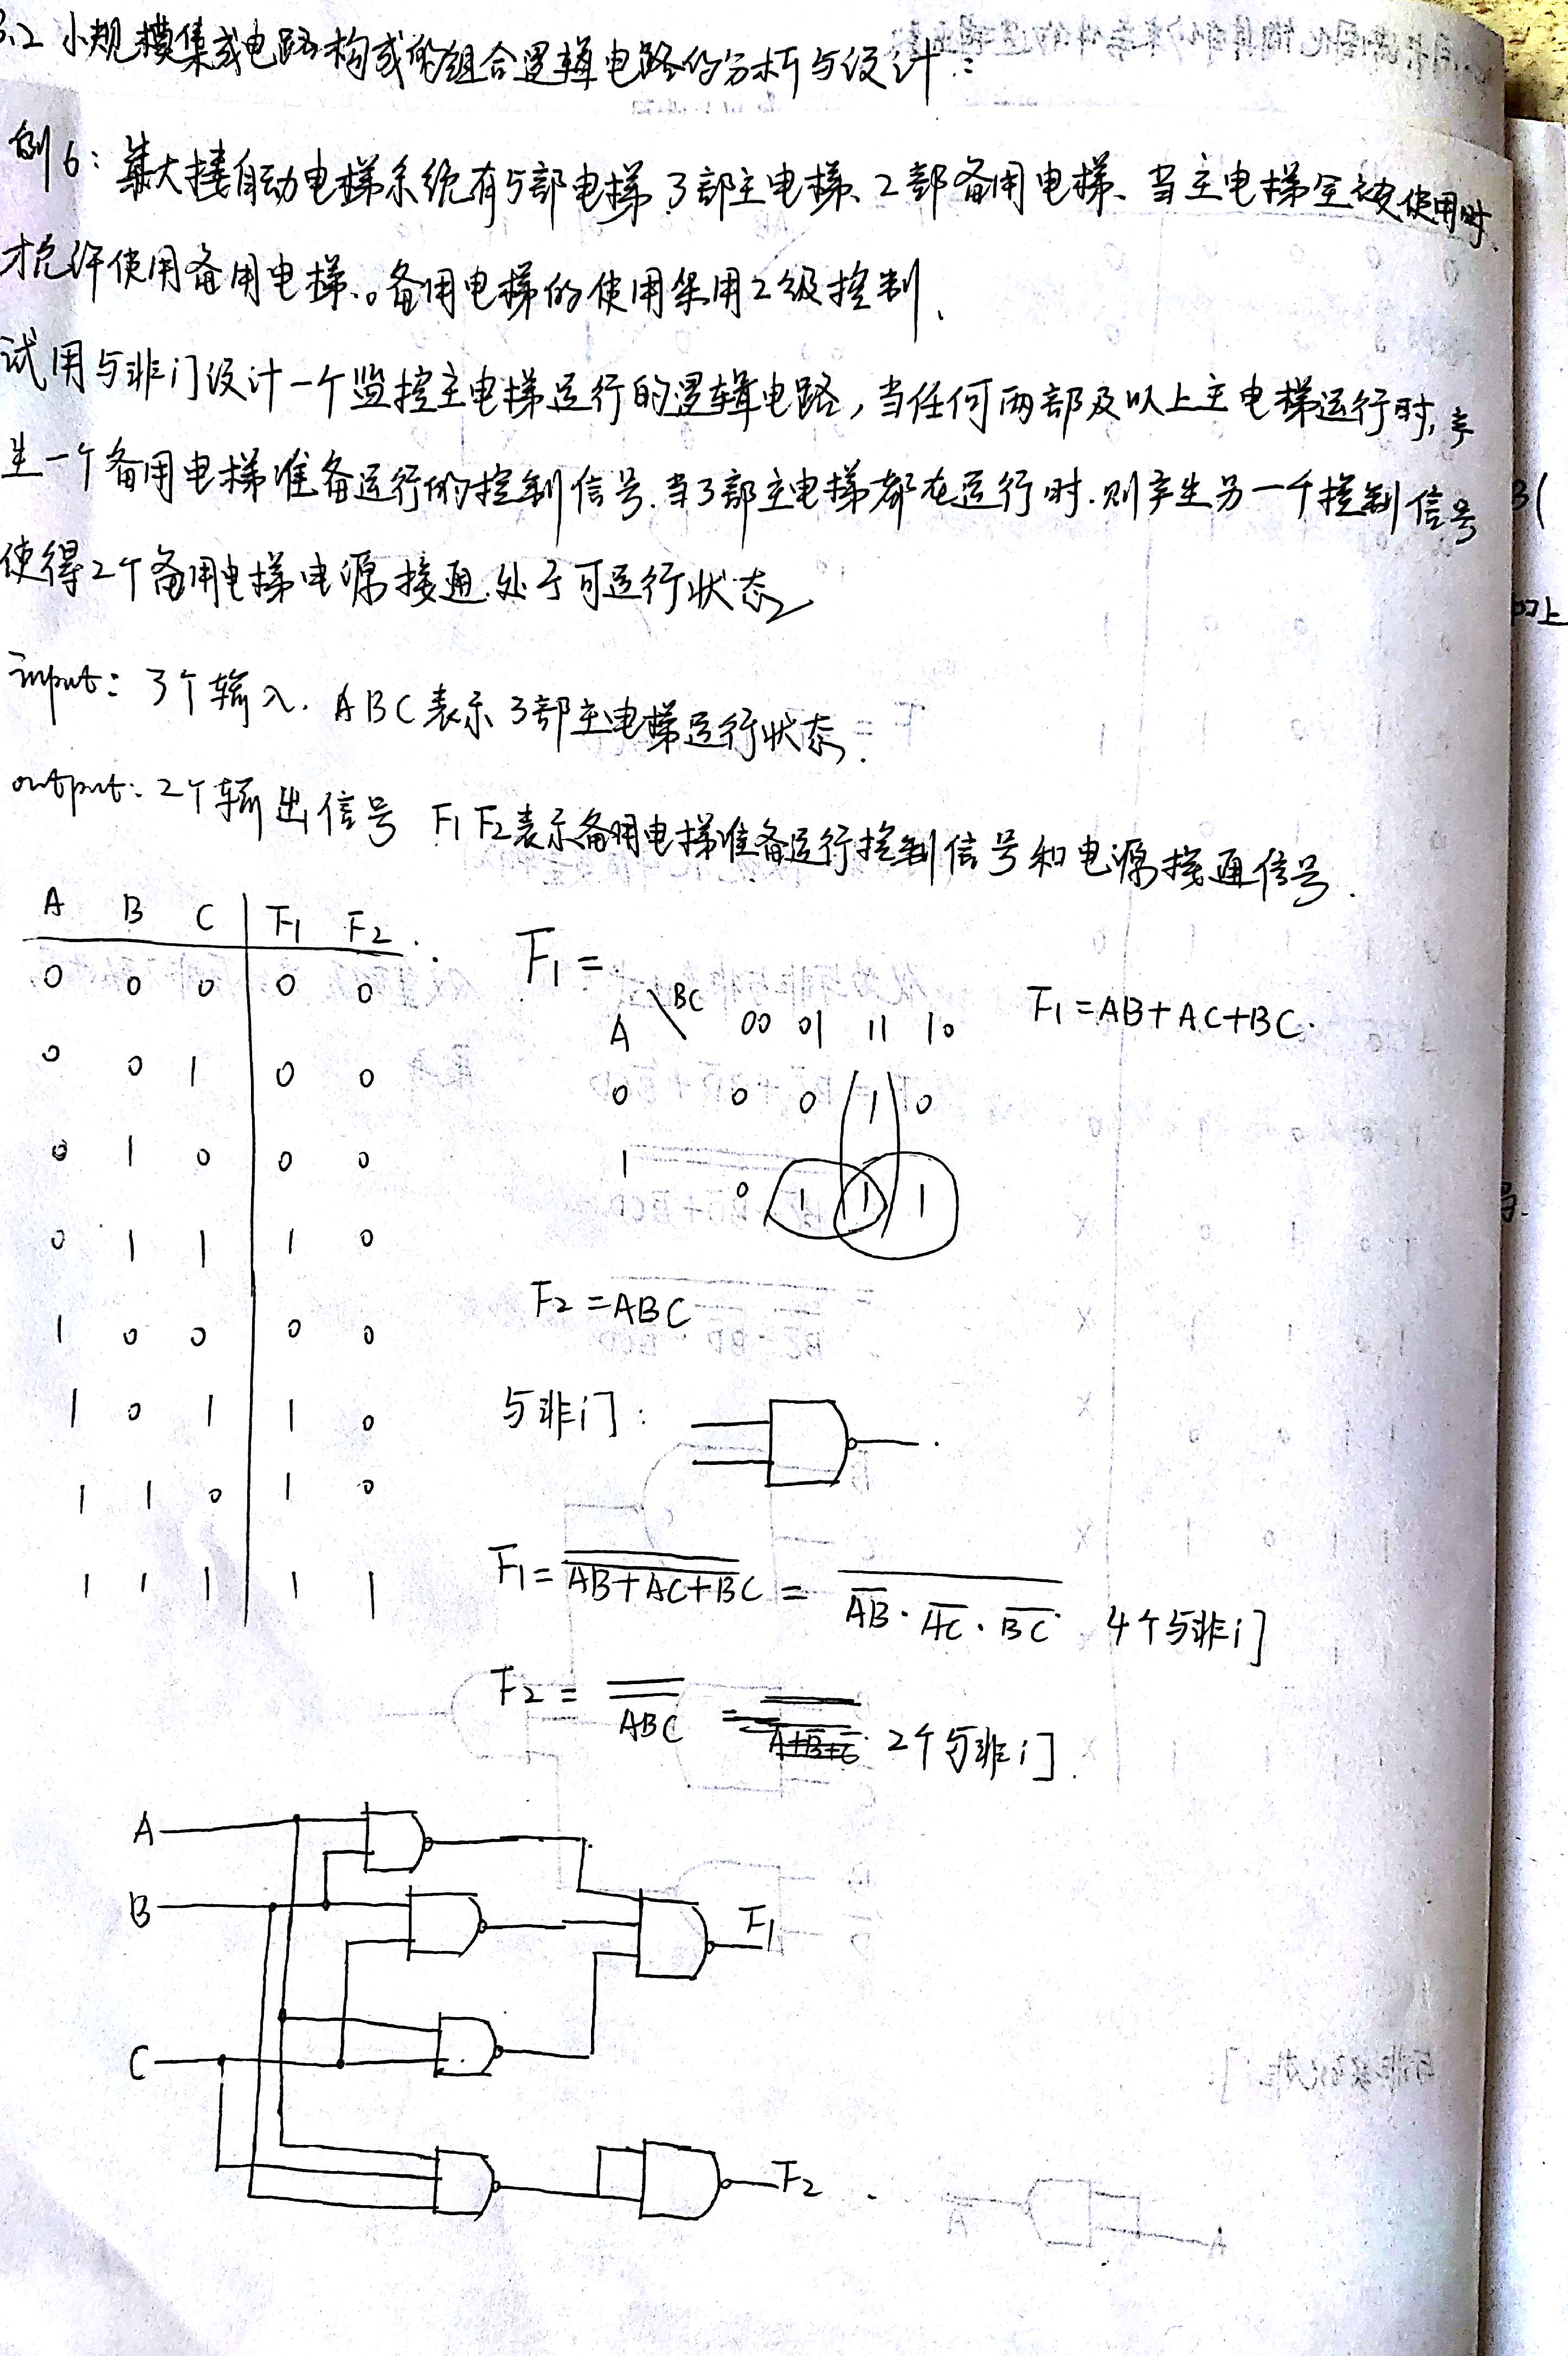 3.2 小规模集成电路构成的组合逻辑电路的分析与设计:
例6: 某大楼自动电梯系统有5部电梯、3部主电梯、2部备用电梯、当主电梯全被使用时
才允许使用备用电梯。备用电梯的使用采用2级控制、
试用与非门设计一个监控主电梯运行的逻辑电路,当任何两部及以上主电梯运行时,产
生一个备用电梯准备运行的控制信号.当3部主电梯都在运行时.则产生另一个控制信号
使得2个备用电梯电源接通.处于可运行状态
input: 3个输入. ABC表示3部主电梯运行状态.
output: 2个输出信号 F1 F2表示备用电梯准备运行控制信号和电源接通信号.
A B C F1 F2
0 0 0 0 0
0 0 1 0 0
0 1 0 0 0
0 1 1 1 0
1 0 0 0 0
1 0 1 1 0
1 1 0 1 0
1 1 1 1 1
F1 =
A \ BC 00 01 11 10
0 0 0 1 0
1 0 1 1 1
F1 = AB+AC+BC.
F2 = ABC
与非门:
F1 = \overline{\overline{AB+AC+BC}} = \overline{\overline{AB}·\overline{AC}·\overline{BC}} 4个与非门
F2 = \overline{\overline{ABC}} 2个与非门.
A
B
C
F1
F2